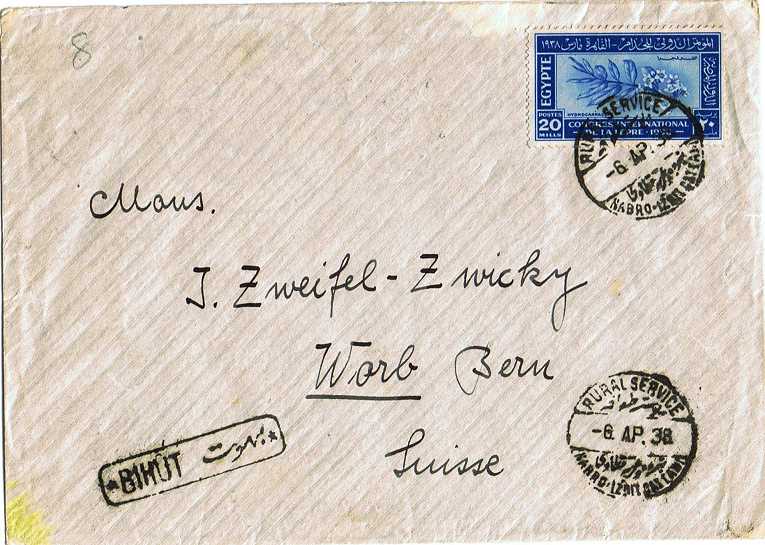 8
المؤتمر الدولى للجذام - القاهرة مارس ١٩٣٨
EGYPTE
POSTES
20
MILLS
CONGRÈS INTERNATIONAL
DE LA LÈPRE - 1938
٢٠
RURAL SERVICE
-6. AP. 38
NABRO-IZBIT
Mons.
J. Zweifel-Zwicky
Worb Bern
Suisse
BIHÛT بهوت
RURAL SERVICE
-6. AP. 38
NABRO-IZBIT